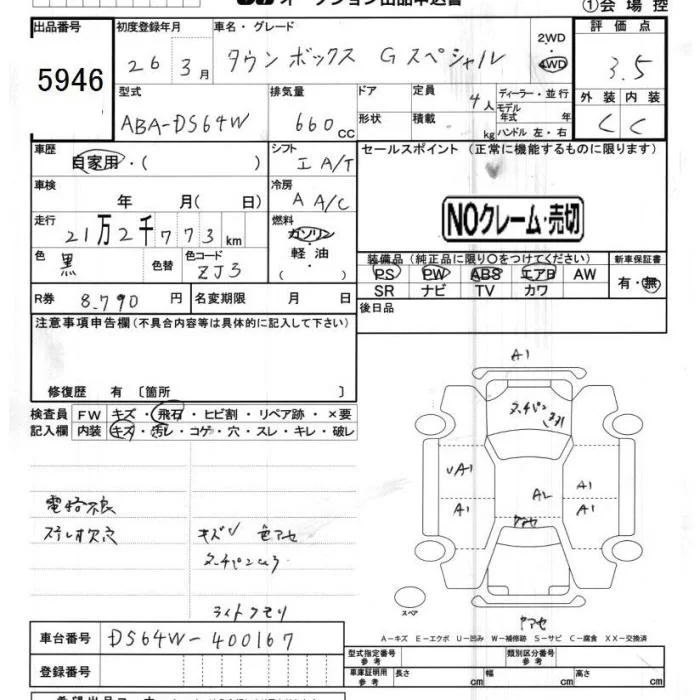 オークション出品申込書
①会場控
出品番号 初度登録年月 車名・グレード 評価点
5946 26年3月 タウンボックス Gスペシャル 2WD・4WD 3.5
型式 排気量 ドア 定員 ディーラー・並行 外装 内装
ABA-DS64W 660cc 4人 モデル年式 年 C C
形状 積載 kg ハンドル 左・右
車歴 シフト セールスポイント (正常に機能するものに限ります)
自家用・( ) I A/T
車検 冷房
年 月( 日) A A/C
NOクレーム・売切
走行 燃料
21万2千773km ガソリン・軽油・( )
色 色替 色コード 装備品 (純正品に限り○をつけてください) 新車保証書
黒 ZJ3 PS PW ABS エアB AW 有・無
SR ナビ TV カワ
R券 8,790円 名変期限 月 日 後日品
注意事項申告欄(不具合内容等は具体的に記入して下さい)
修復歴 有 〔箇所 〕
検査員 FW キズ・飛石・ヒビ割・リペア跡・×要
記入欄 内装 キズ・汚レ・コゲ・穴・スレ・キレ・破レ
A1
タッチペン
UA1 A1
A1 A2 A1
ヤアセ
電格不良
ステレオ欠品 キズU 色アセ
ライトクモリ
スペア
ヤアセ
A-キズ E-エクボ U-凹み W-補修跡 S-サビ C-腐食 XX-交換済
車台番号 DS64W-400167
型式指定番号 参考 類別区分番号 参考
登録番号
車庫証明用 参考 長さ cm 幅 cm 高さ cm